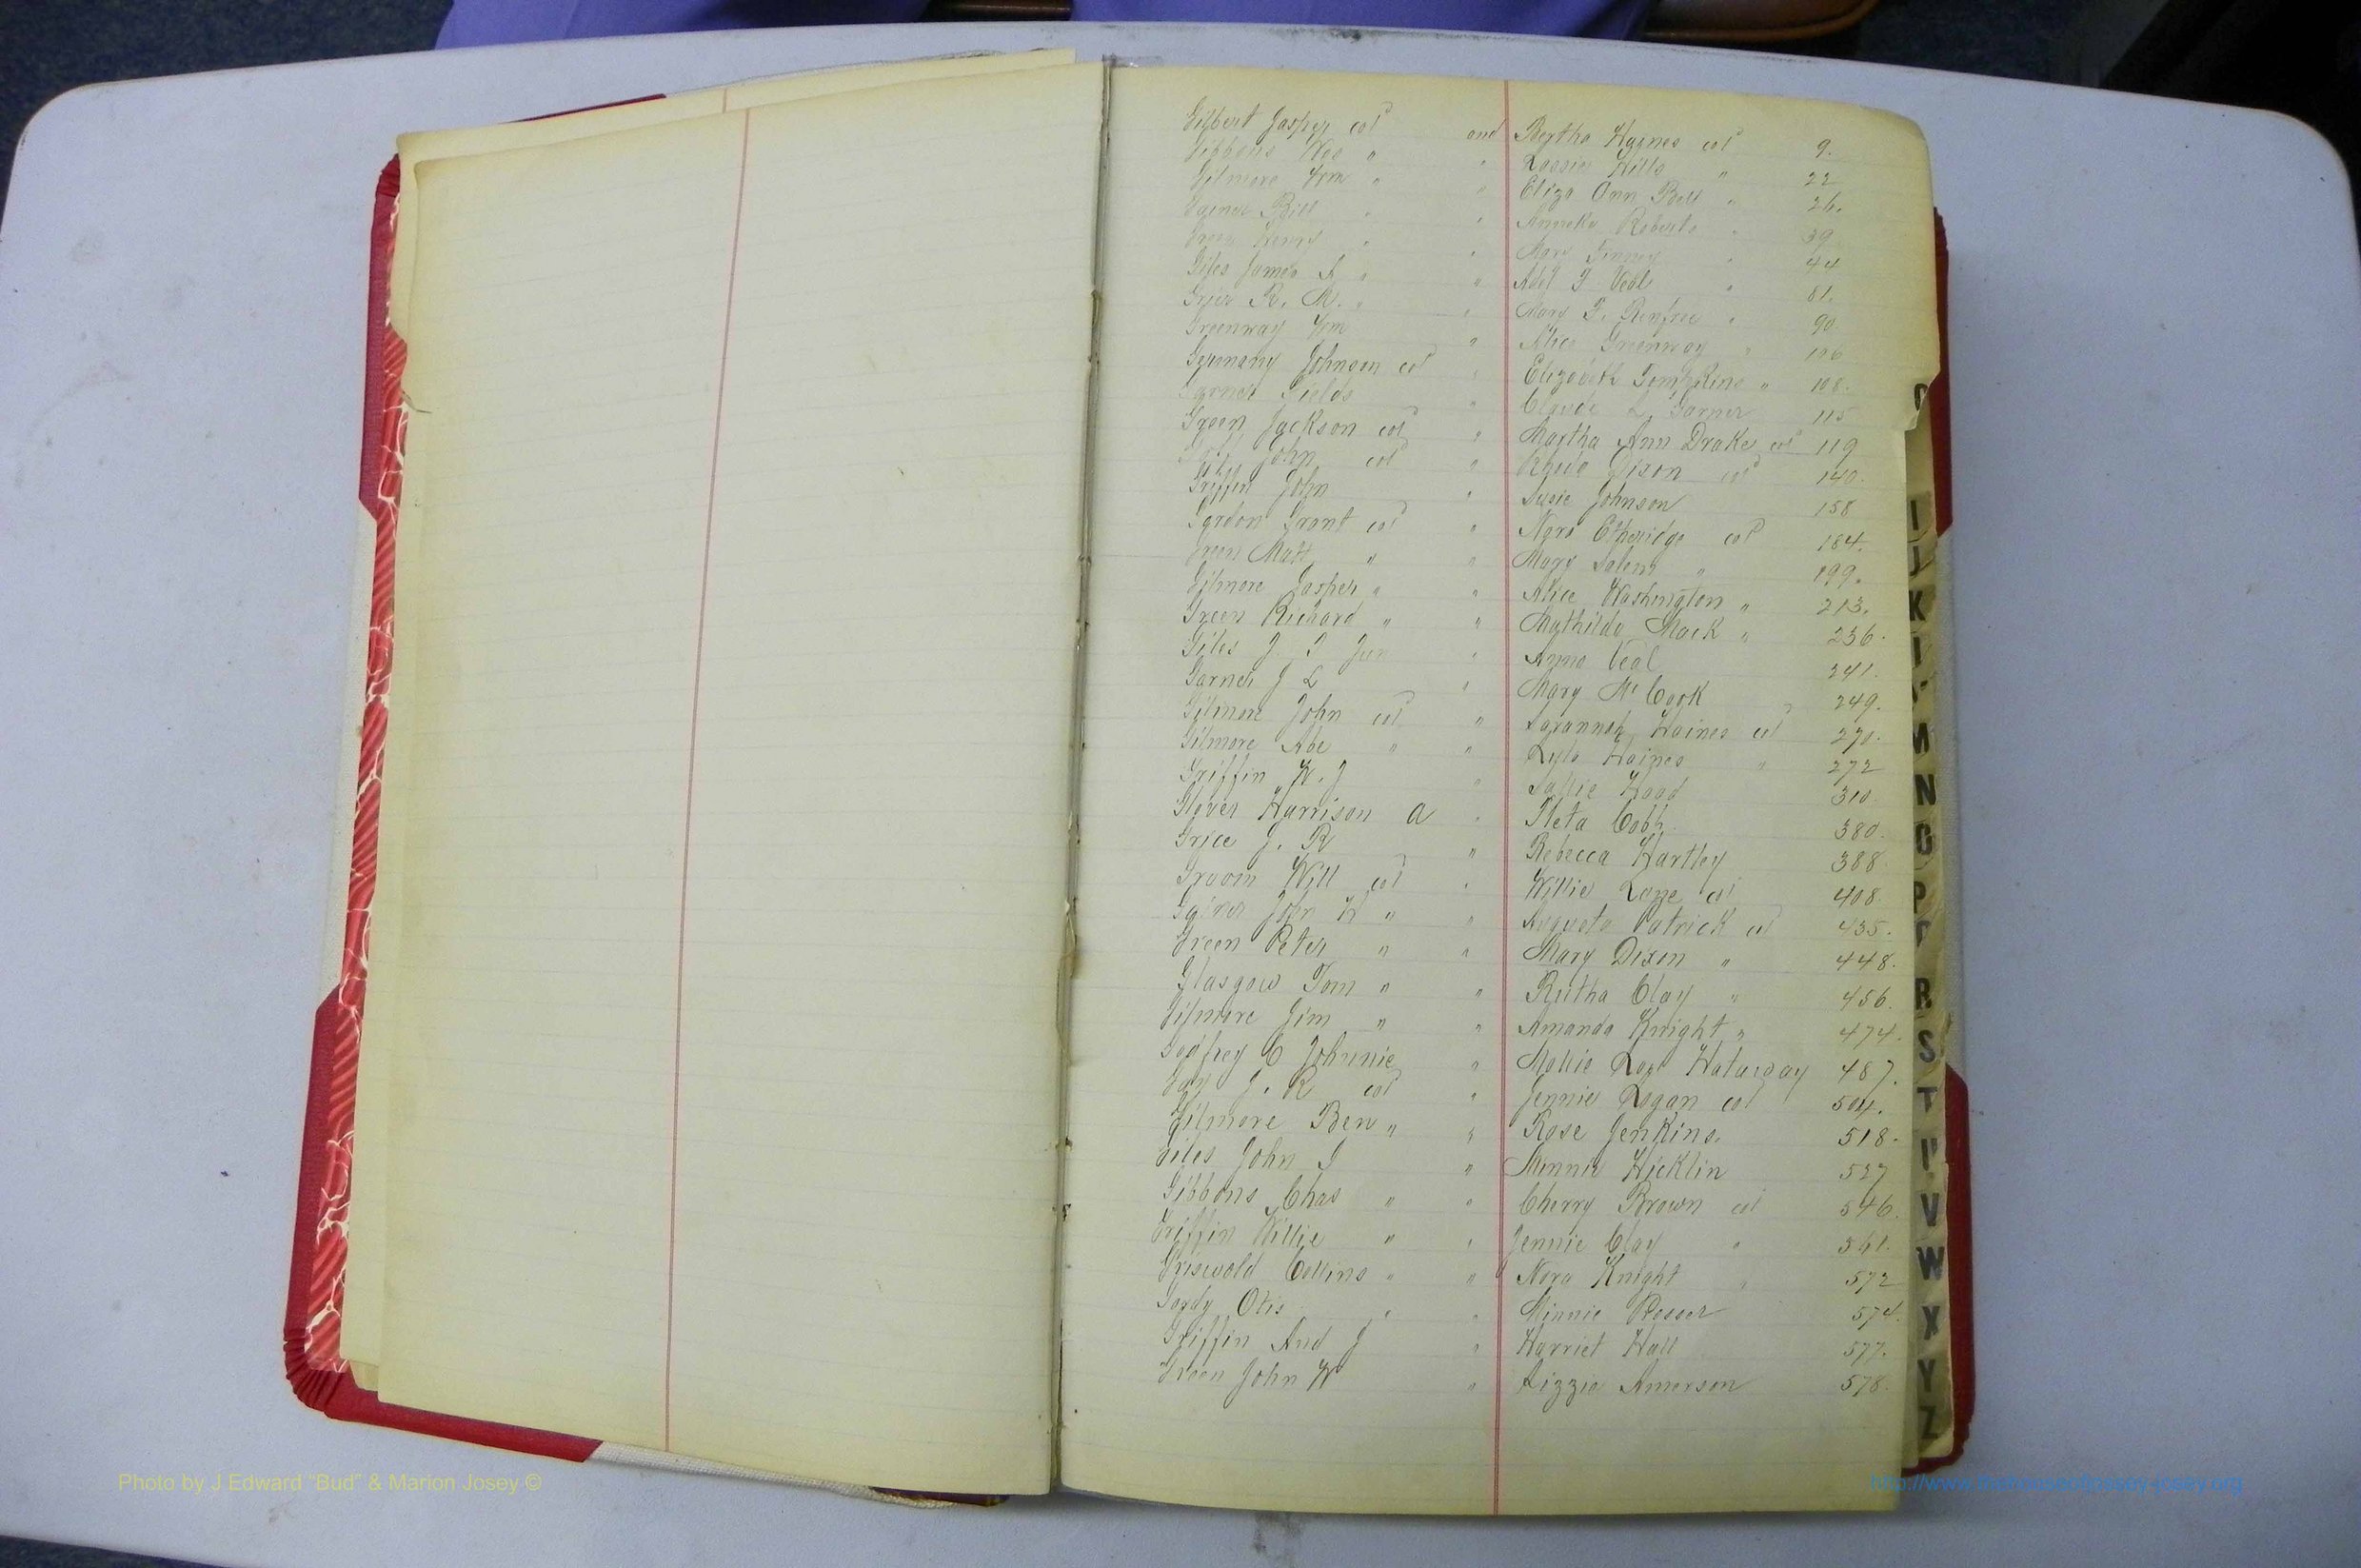 Gilbert Jasper col and Bertha Haynes col 9.
Gibbons Wes " " Lossie Wills " 22
Gilmore Wm " " Eliza Ann Bell " 26.
Gainer Bill " " Roberts " 39
Green Henry " " Mary Finney " 44
Giles James A " " T Veal " 81.
Grier R. M. " " Mary F. Renfroe " 90
Greenway Wm " Alice Greenway " 106
Germany Johnson col " Elizabeth Tompkins " 108.
Garner Fields " Claude L Garner 115
Green Jackson col " Martha Ann Drake col 119
John col " Dixon col 140.
Griffin John " Susie Johnson 158
Gordon Grant col " Nora Etheridge col 184.
Green Matt " " Mary Salem " 199.
Gilmore Jasper " " Alice Washington " 213.
Green Richard " " Mathilda Mack " 236.
Giles J. T Jun " Anna Veal 241.
Garner J L " Mary McCook 249.
Gilmore John col " Savannah Haines col 270.
Gilmore Abe " " Lyla Haines " 272
Griffin W. J " Sallie Hood 310.
Glover Harrison a " Pleta Cobb 380.
Grice J. R " Rebecca Hartley 388
Groom Will col " Willie Lane col 408
Gainer John W " " Augusta Patrick col 435.
Green Peter " " Mary Dixon " 448.
Glasgow Tom " " Rutha Clay " 456.
Gilmore Jim " " Amanda Knight " 474.
Godfrey C Johnnie " Mollie Hataway 487.
Gay J. R col " Jennie Logan col 504.
Gilmore Ben " " Rose Jenkins. 518.
Giles John I " Minnie Hicklin 527
Gibbons Chas " " Cherry Brown col 546.
Griffin Willie " " Jennie Clay " 561.
Griswold Collins " " Nora Knight " 572
Gordy Otis " Minnie Prosser 574.
Griffin And J " Harriet Hall 577.
Green John W " Lizzie Amerson 578.
I
J
K
M
N
O
P
R
S
T
U
V
W
X
Y
Z
Photo by J Edward "Bud" & Marion Josey ©